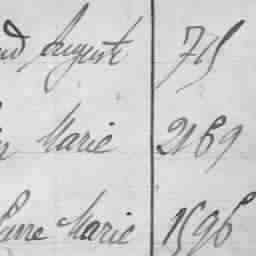 August 715
Marie 2169
Pierre Marie 1596